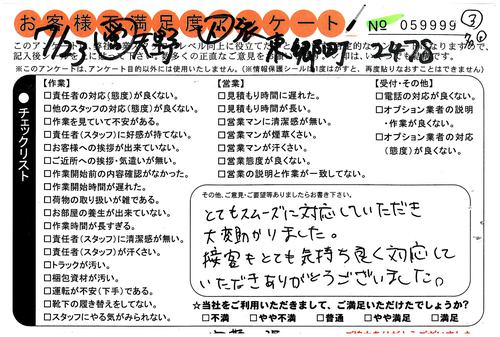 お客様不満足度アンケート
No 059999
③
7/23
東郷町 2478
※このアンケートは、アンケート目的以外には使用いたしません。(※情報保護シールは1度はがすと、再度貼りなおすことはできません)
チェックリスト
【作業】
□責任者の対応(態度)が良くない。
□他のスタッフの対応(態度)が良くない。
□作業を見ていて不安がある。
□責任者(スタッフ)に好感が持てない。
□お客様への挨拶が出来ていない。
□ご近所への挨拶・気遣いが無い。
□作業開始前の内容確認がなかった。
□作業開始時間が遅れた。
□荷物の取り扱いが雑である。
□お部屋の養生が出来ていない。
□作業時間が長すぎる。
□責任者(スタッフ)に清潔感が無い。
□責任者(スタッフ)が汗くさい。
□トラックが汚い。
□梱包資材が汚い。
□運転が不安(下手)である。
□靴下の履き替えをしてない。
□スタッフにやる気がみられない。
【営業】
□見積もり時間に遅れた。
□見積もり時間が長い。
□営業マンに清潔感が無い。
□営業マンが煙草くさい。
□営業マンが汗くさい。
□営業態度が良くない。
□営業の説明と作業が一致してない。
【受付・その他】
□電話の対応が良くない。
□オプション業者の説明
・作業が良くない。
□オプション業者の対応
(態度)が良くない。
その他、ご意見・ご要望等ありましたらお書き下さい。
とてもスムーズに対応していただき
大変助かりました。
接客もとても気持ち良く対応して
いただきありがとうございました。
☆当社をご利用いただきまして、ご満足いただけたでしょうか?
□不満 □やや不満 □普通 □やや満足 □満足